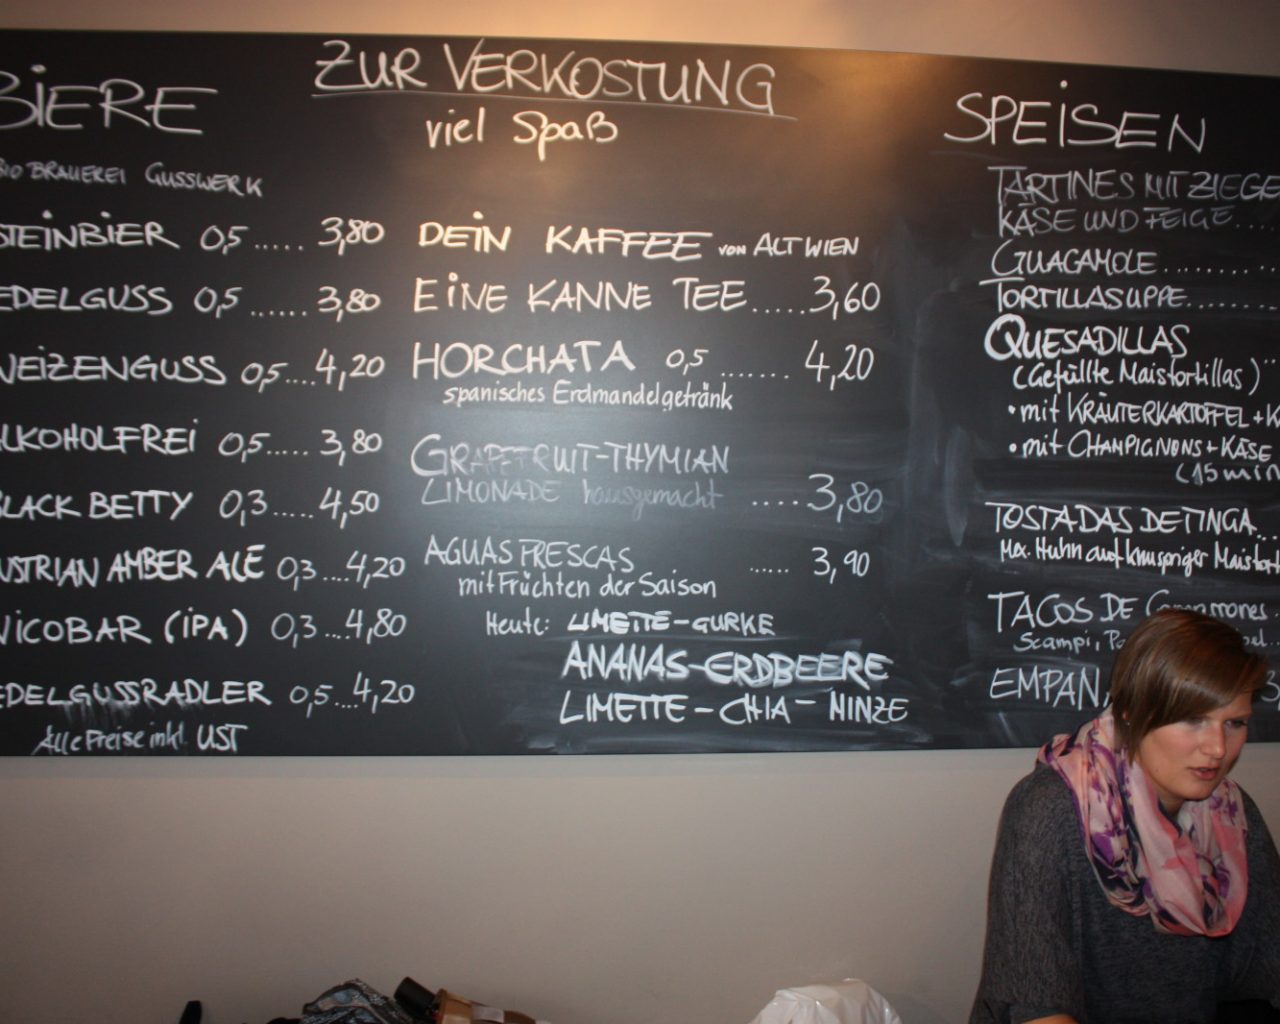 BIERE
BIO BRAUEREI GUSSWERK
STEINBIER 0,5 ..... 3,80
EDELGUSS 0,5 ...... 3,80
WEIZENGUSS 0,5.... 4,20
ALKOHOLFREI 0,5..... 3,80
BLACK BETTY 0,3..... 4,50
AUSTRIAN AMBER ALE 0,3 ....4,20
NICOBAR (IPA) 0,3 ...4,80
EDELGUSSRADLER 0,5 ....4,20
Alle Preise inkl. UST
ZUR VERKOSTUNG
viel Spaß
DEIN KAFFEE VON ALT WIEN
EINE KANNE TEE.....3,60
HORCHATA 0,5 ....... 4,20
spanisches Erdmandelgetränk
GRAPEFRUIT-THYMIAN
LIMONADE hausgemacht ....3,80
AGUAS FRESCAS ...... 3,90
mit Früchten der Saison
Heute: LIMETTE-GURKE
ANANAS-ERDBEERE
LIMETTE-CHIA-MINZE
SPEISEN
TARTINES MIT ZIEGE
KÄSE UND FEIGE....
GUACAMOLE..........
TORTILLASUPPE.......
QUESADILLAS
(Gefüllte Maistortillas)
• mit KRÄUTERKARTOFFEL+K
• mit CHAMPIGNONS+KÄSE
(15 min
TOSTADAS DE TINGA...
Mex. Huhn auf knuspriger Maistort
TACOS DE
Scampi,
EMPAN 3